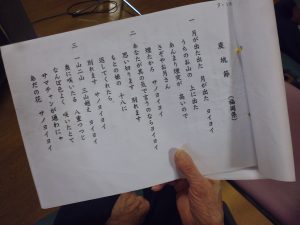 炭坑節
（福岡県）
一 月が出た出た 月が出た ヨイヨイ
うちのお山の 上に出た
あんまり煙突が 高いので
さぞやお月さん
煙たかろ サノヨイヨイ
二 あなたがその気で 言うのならヨイヨイ
思い切ります 別れます
もとの娘の 十八に
返してくれたら
別れます サノヨイヨイ
三 一山二山 三山越え ヨイヨイ
奥に咲いたる 八重つつじ
なんぼ色よく 咲いたとて
サマチャンが通わにゃ
あだの花 サノヨイヨイ